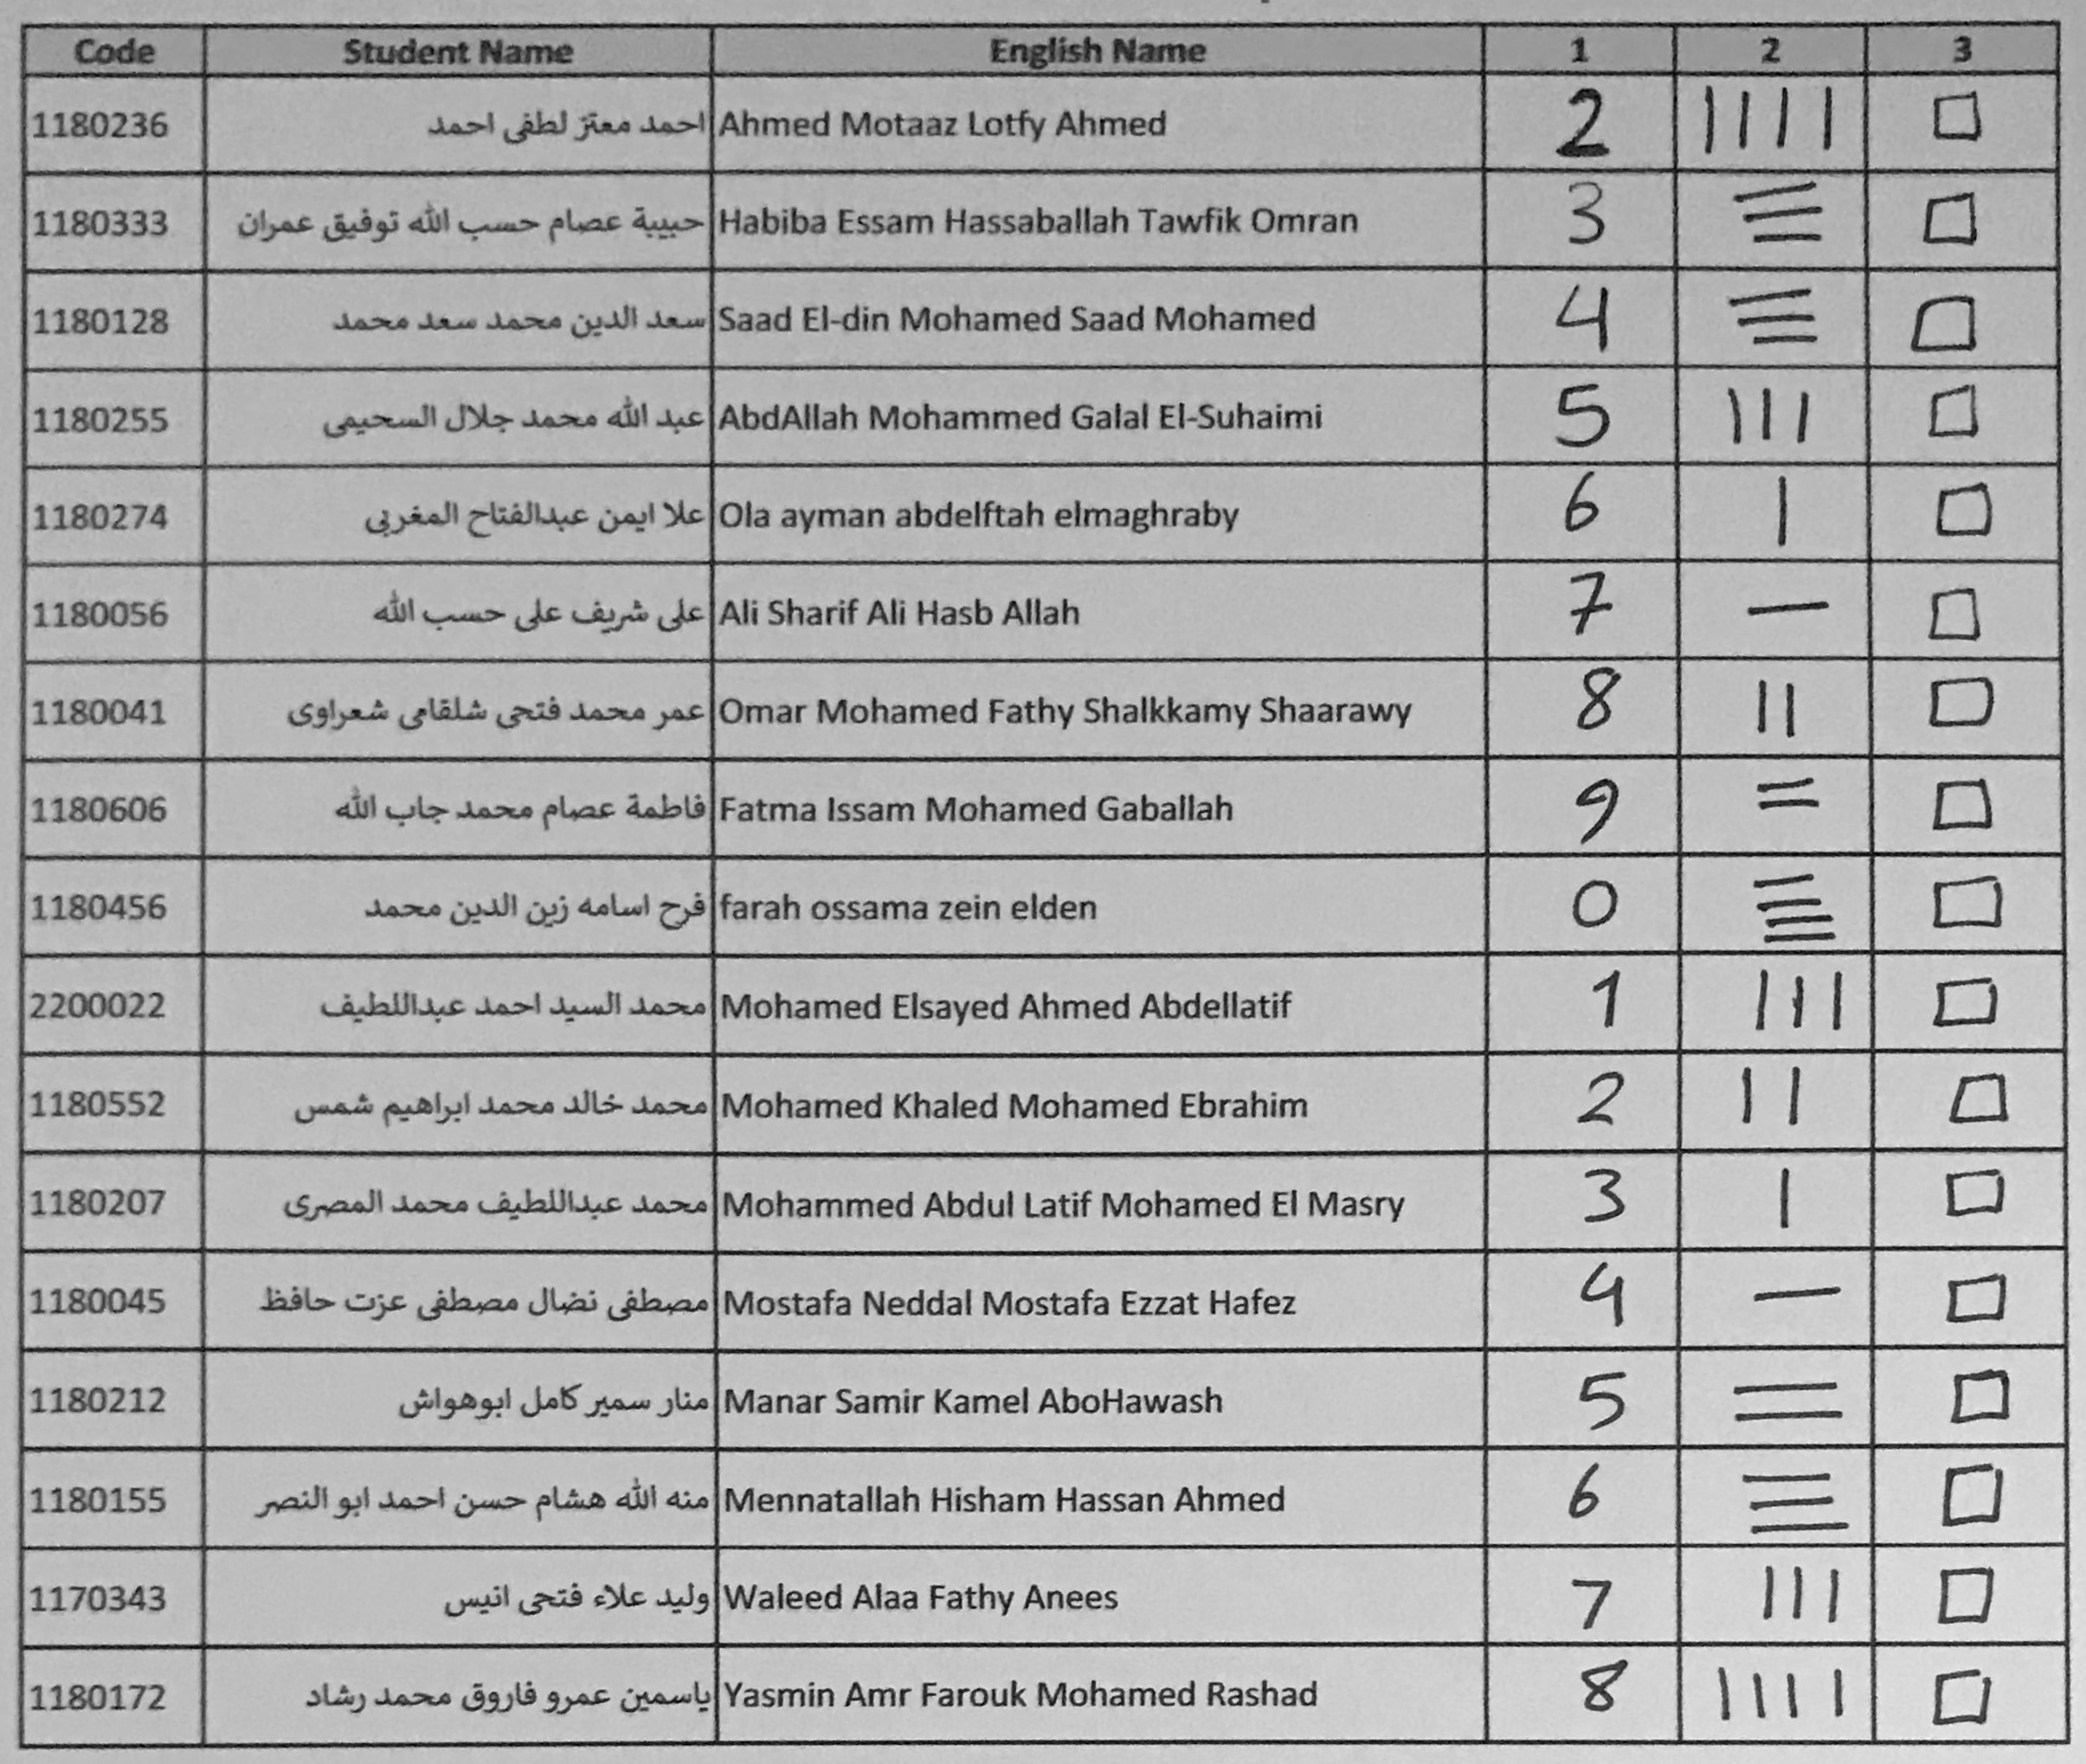 Code Student Name English Name 1 2 3
1180236 احمد معتز لطفى احمد Ahmed Motaaz Lotfy Ahmed 2 |||| □
1180333 حبيبة عصام حسب الله توفيق عمران Habiba Essam Hassaballah Tawfik Omran 3 ☰ □
1180128 سعد الدين محمد سعد محمد Saad El-din Mohamed Saad Mohamed 4 ☰ □
1180255 عبد الله محمد جلال السحيمى AbdAllah Mohammed Galal El-Suhaimi 5 ||| □
1180274 علا ايمن عبدالفتاح المغربى Ola ayman abdelftah elmaghraby 6 | □
1180056 على شريف على حسب الله Ali Sharif Ali Hasb Allah 7 — □
1180041 عمر محمد فتحى شلقامى شعراوى Omar Mohamed Fathy Shalkkamy Shaarawy 8 || □
1180606 فاطمة عصام محمد جاب الله Fatma Issam Mohamed Gaballah 9 = □
1180456 فرح اسامه زين الدين محمد farah ossama zein elden 0 𝍣 □
2200022 محمد السيد احمد عبداللطيف Mohamed Elsayed Ahmed Abdellatif 1 ||| □
1180552 محمد خالد محمد ابراهيم شمس Mohamed Khaled Mohamed Ebrahim 2 || □
1180207 محمد عبداللطيف محمد المصرى Mohammed Abdul Latif Mohamed El Masry 3 | □
1180045 مصطفى نضال مصطفى عزت حافظ Mostafa Neddal Mostafa Ezzat Hafez 4 — □
1180212 منار سمير كامل ابوهواش Manar Samir Kamel AboHawash 5 = □
1180155 منه الله هشام حسن احمد ابو النصر Mennatallah Hisham Hassan Ahmed 6 ☰ □
1170343 وليد علاء فتحى انيس Waleed Alaa Fathy Anees 7 ||| □
1180172 ياسمين عمرو فاروق محمد رشاد Yasmin Amr Farouk Mohamed Rashad 8 |||| □